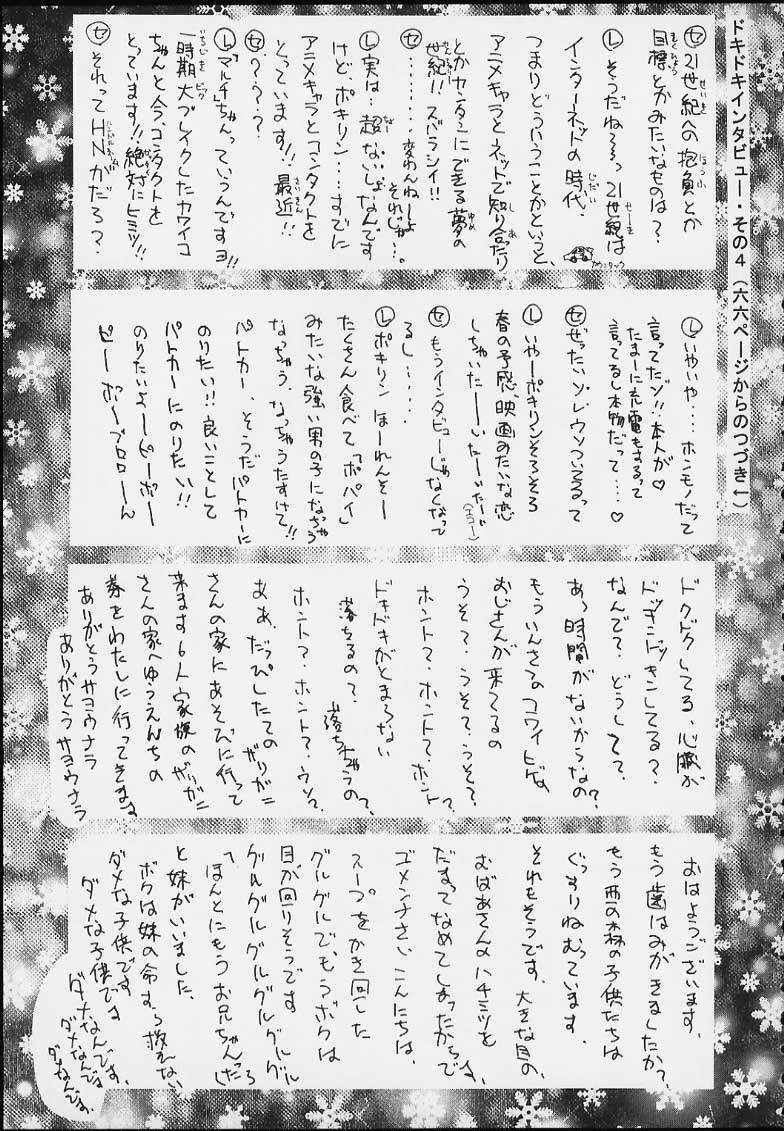 ドキドキインタビュー・その4(六六ページからのつづき←)
セ 21世紀への抱負とか
目標とかみたいなものは?
レ そうだね〜〜っ 21世紀は
インターネットの時代、
カウンタック
つまりどういうことかというと、
アニメキャラとネットで知り合ったり
とかカンタンにできる夢の
世紀!! ズバラシイ!!
セ ………変わんねーよ
それじゃ…。
レ 実は…超ないしょなんです
けど ポキリン…すでに
アニメキャラとコンタクトを
とっています!! 最近!!
セ ? ? ?
レ 「マルチ」ちゃんっていうんですヨ!!
一時期大ブレイクしたカワイコ
ちゃんと今、コンタクトを
とっています!! 絶対にヒミツ!!
セ それってHNがだろ?
レ いやいや…ホンモノだって
言ってたゾ!! 本人が♡
たまーに充電もするって
言ってるし本物だって…♡
セ ぜったいソレウソついてるって
レ いやーポキリンそろそろ
春の予感、映画みたいな恋
しちゃいたーーいたーいたーい
(エコー)
セ もうインタビューじゃなくなって
るし……。
レ ポキリン ほーれんそー
たくさん食べて「ポパイ」
みたいな強い男の子になっちゃう
なっちゃう、なっちゃうたすけて!!
パトカー、そうだ パトカーに
のりたい!! 良いことして
パトカーにのりたい!!
のりたいよーピーポー
ピーポーブロローん
ドクドクしてる、心臓が
ドッキンドッキンしてる?
なんで? どうして?
あっ時間がないからなの?
もういんさつのコワイヒゲ
おじさんが来てるの
うそ? うそ? うそ?
ホント? ホント? ホント?
ドキドキがとまらない
落ちるの? 落ちちゃうの?
ホント? ホント? ウソ?
ああ、だっぴしたての ザリガニ
さんの家にあそびに行って
来ます 6人家族のザリガニ
さんの家へゆうえんちの
券をわたしに行ってきます
ありがとうサヨウナラ
ありがとうサヨウナラ
おはようございます、
もう歯はみがきましたか?
もう西の森の子供たちは
ぐっすりねむっています。
それもそうです、大きな目の、
おばあさんのハチミツを
だまってなめてしまったからです、
ゴメンナさい、こんにちは、
スープをかき回した
グルグルでもうボクは
目が回りそうです
グルグルグルグルグルグル
「ほんとにもうお兄ちゃんったら」
と妹がいいました、
ボクは妹の命すら救えない
ダメな子供です
ダメな子供です
ダメなんです、
ダメなんです
ダメなんです、